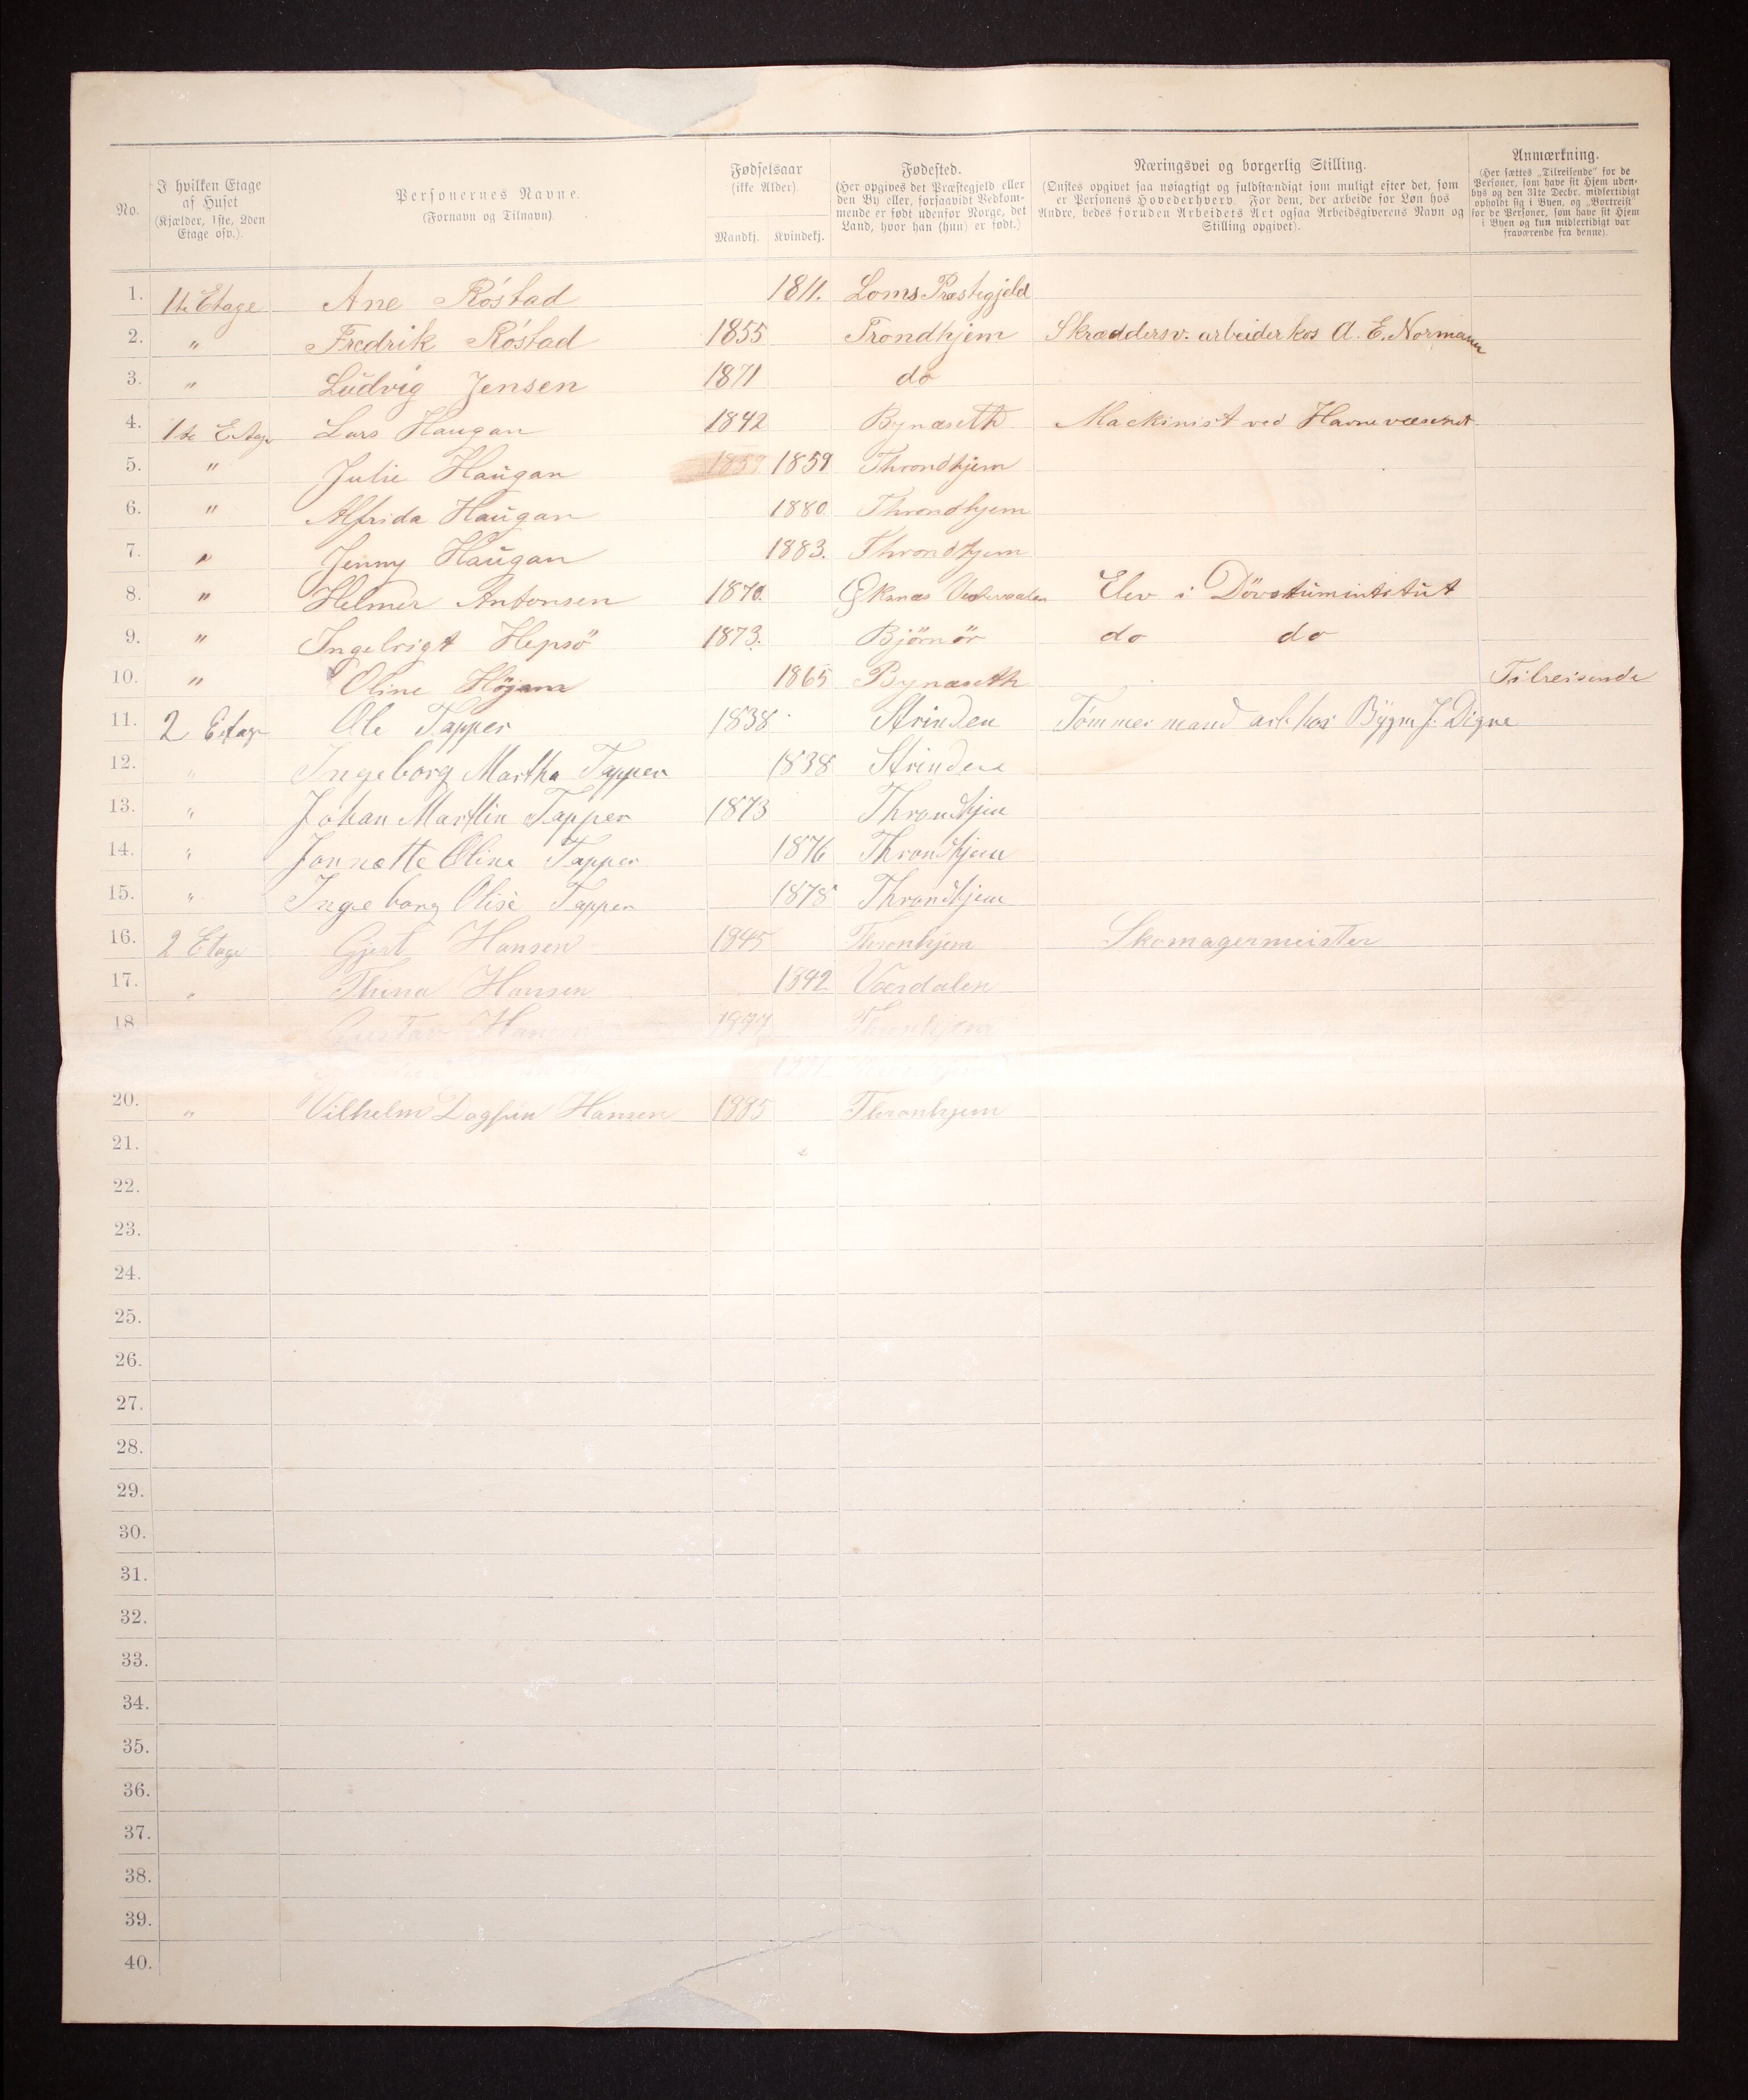 No.
I hvilken Etage af Huset (Kjælder, 1ste, 2den Etage osv.).
Personernes Navne. (Fornavn og Tilnavn).
Fødselsaar (ikke Alder).
Mandkj. Kvindekj.
Fødested. (Her opgives det Præstegjeld eller den By eller, forsaavidt Vedkommende er født udenfor Norge, det Land, hvor han (hun) er født.)
Næringsvei og borgerlig Stilling. (Ønskes opgivet saa nøiagtigt og fuldstændigt som muligt efter det, som er Personens Hovederhverv. For dem, der arbeide for Løn hos Andre, bedes foruden Arbeidets Art ogsaa Arbeidsgiverens Navn og Stilling opgivet).
Anmærkning. (Her sættes „Tilreisende" for de Personer, som have sit Hjem udenbys og den 31te Decbr. midlertidigt opholdt sig i Byen, og „Bortreist" for de Personer, som have sit Hjem i Byen og kun midlertidigt var fraværende fra denne).
1. 1te Etage Ane Róstad 1811. Loms Præstegjeld
2. " Fredrik Róstad 1855 Trondhjem Skræddersv. arbeider hos A. E. Normann
3. " Ludvig Jensen 1871 do
4. 1te Etage Lars Haugan 1842 Bynæseth Mackinist ved Havnevæsenet
5. " Julie Haugan 1859 1859 Throndhjem
6. " Alfrida Haugan 1880 Throndhjem
7. " Jenny Haugan 1883. Throndhjem
8. " Helmer Antonsen 1870. Øksnæs Vesteraalen Elev i Dövstuminstitut
9. " Ingebrigt Hepsö 1873. Björnör do do
10. " Oline 1865 Bynæseth Tilreisende
11. 2 Etage Ole Tapper 1838 Strinden Tömmermand arb hos Bÿgm J. Digre
12. " Ingeborg Martha Tapper 1838 Strinden
13. " Johan Marttin Tapper 1873 Throndhjem
14. " Jonnette Oline Tapper 1876 Throndhjem
15. " Ingeborg Olise Tapper 1878 Throndhjem
16. 2 Etage Gjert Hansen 1845 Thronhjem Skomagermeister
17. " Thina Hansen 1842 Værdalen
18 Gustav Hansen 1877 Thronhjem
20. " Vilhelm Dagfin Hansen 1885 Thronhjem
21.
22.
23.
24.
25.
26.
27.
28.
29.
30.
31.
32.
33.
34.
35.
36.
37.
38.
39.
40.